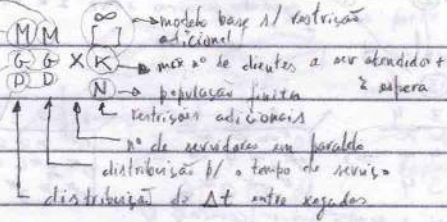 ∞ → modelo base s/ restrição
M M [ ] adicional
G G X K → max nº de clientes a ser atendidos +
D D à espera
N → população finita
restrições adicionais
nº de servidores em paralelo
distribuição p/ o tempo de serviço
distribuição do Δt entre chegadas